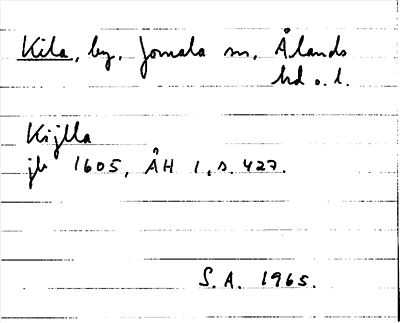 Kila, by, Jomala sn, Ålands
hd o. l.
Kijlla
jb 1605, ÅH 1, s. 427.
S. A. 1965.